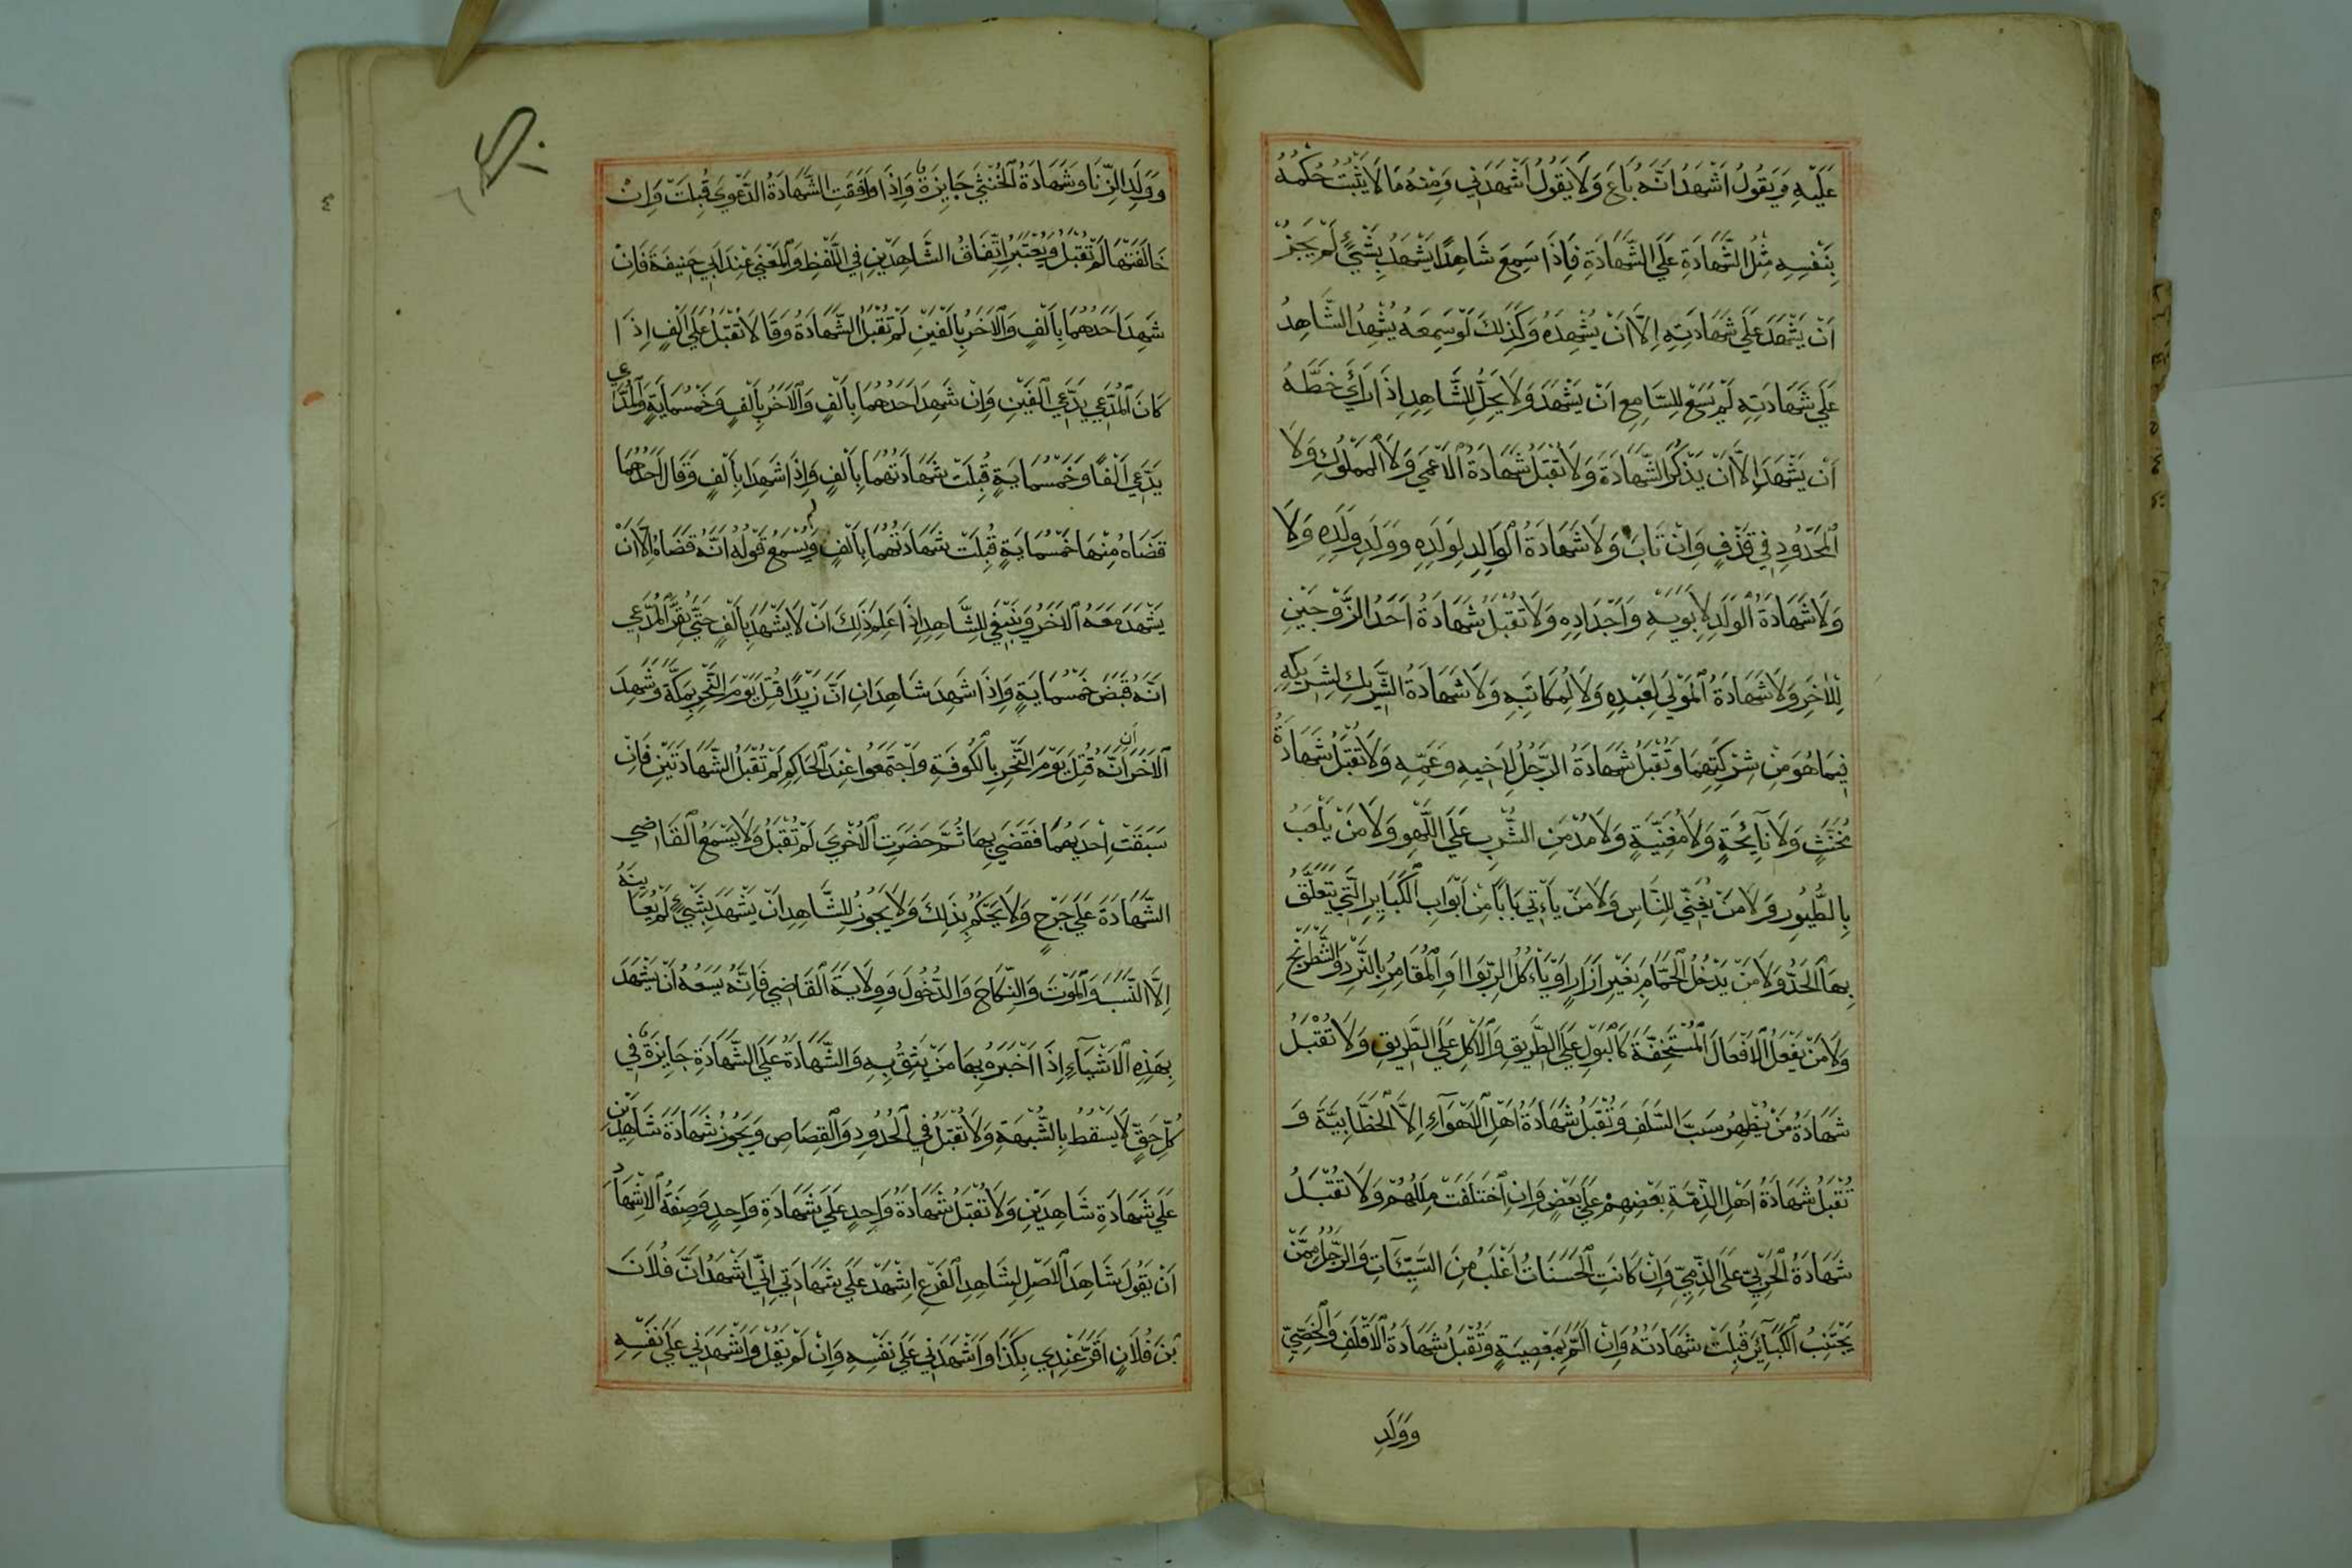 عَلَيْهِ وَيَقُولُ اَشْهَدُ اَنَّهُ بَاعَ وَلَا يَقُولُ اَشْهَدَنِي وَمِنْهُ مَا لَا يَثْبُتُ حُكْمُهُ
بِنَفْسِهِ مِثْلُ الشَّهَادَةِ عَلَي الشَّهَادَةِ فَاِذَا سَمِعَ شَاهِدًا يَشْهَدُ بِشَيْئٍ لَمْ يَجُزْ
اَنْ يَشْهَدَ عَلَي شَهَادَتِهِ اِلَّا اَنْ يُشْهِدَهُ وَكَذَلِكَ لَوْ سَمِعَهُ يُشْهِدُ الشَّاهِدَ
عَلَي شَهَادَتِهِ لَمْ يَسَعْ لِلسَّامِعِ اَنْ يَشْهَدَ وَلَا يَحِلُّ لِلشَّاهِدِ اِذَا رَاَي خَطَّهُ
اَنْ يَشْهَدَ اِلَّا اَنْ يَذْكُرَ الشَّهَادَةَ وَلَا تُقْبَلُ شَهَادَةُ الْاَعْمَي وَلَا الْمَمْلُوكِ وَلَا
الْمَحْدُودِ فِي قَذْفٍ وَاِنْ تَابَ وَلَا شَهَادَةُ الْوَالِدِ لِوَلَدِهِ وَوَلَدِ وَلَدِهِ وَلَا
وَلَا شَهَادَةُ الْوَلَدِ لِاَبَوَيْهِ وَاَجْدَادِهِ وَلَا تُقْبَلُ شَهَادَةُ اَحَدِ الزَّوْجَيْنِ
لِلْاٰخَرِ وَلَا شَهَادَةُ الْمَوْلَي لِعَبْدِهِ وَلَا لِمُكَاتَبِهِ وَلَا شَهَادَةُ الشَّرِيكِ لِشَرِيكِهِ
فِيمَا هُوَ مِنْ شِرْكَتِهِمَا وَتُقْبَلُ شَهَادَةُ الرَّجُلِ لِاَخِيهِ وَعَمِّهِ وَلَا تُقْبَلُ شَهَادَةُ
مُخَنَّثٍ وَلَا نَآئِحَةٍ وَلَا مُغَنِّيَةٍ وَلَا مُدْمِنِ الشُّرْبِ عَلَي اللَّهْوِ وَلَا مَنْ يَلْعَبُ
بِالطُّيُورِ وَلَا مَنْ يُغَنِّي لِلنَّاسِ وَلَا مَنْ يَأْتِي بَابًا مِنْ اَبْوَابِ الْكَبَايِرِ الَّتِي يَتَعَلَّقُ
بِهَا الْحَدُّ وَلَا مَنْ يَدْخُلُ الْحَمَّامَ بِغَيْرِ اَزَارٍ اَوْ يَأْكُلُ الرِّبَوا اَوِ الْمُقَامِرُ بِالنَّرْدِ وَالشَّطْرَنْجِ
وَلَا مَنْ يَفْعَلُ الْاَفْعَالَ الْمُسْتَخِفَّةَ كَالْبَوْلِ عَلَي الطَّرِيقِ وَالْاَكْلِ عَلَي الطَّرِيقِ وَلَا تُقْبَلُ
شَهَادَةُ مَنْ يُظْهِرُ سَبَّ السَّلَفِ وَتُقْبَلُ شَهَادَةُ اَهْلِ الْاَهْوَآءِ اِلَّا الْخَطَّابِيَّةَ وَ
تُقْبَلُ شَهَادَةُ اَهْلِ الذِّمَّةِ بَعْضِهِمْ عَلَي بَعْضٍ وَاِنِ اخْتَلَفَتْ مِلَلُهُمْ وَلَا تُقْبَلُ
شَهَادَةُ الْحَرْبِيِّ عَلَي الذِّمِّيِّ وَاِنْ كَانَتِ الْحَسَنَاتُ اَغْلَبُ مِنَ السَّيِّئَآتِ وَالرَّجُلُ مِمَّنْ
يَجْتَنِبُ الْكَبَآئِرَ قُبِلَتْ شَهَادَتُهُ وَاِنْ اَلَمَّ بِمَعْصِيَةٍ وَتُقْبَلُ شَهَادَةُ الْاَقْلَفِ وَالْخَصِيِّ
وَوَلَدِ
وَوَلَدِ الزِّنَا وَشَهَادَةُ الْخُنْثَي جَايِزَةٌ وَاِذَا وَافَقَتِ الشَّهَادَةُ الدَّعْوَي قُبِلَتْ وَاِنْ
خَالَفَتْهَا لَمْ تُقْبَلْ وَيُعْتَبَرُ اِتِّفَاقُ الشَّاهِدَيْنِ فِي اللَّفْظِ وَالْمَعْنَي عِنْدَ اَبِي حَنِيفَةَ فَاِنْ
شَهِدَ اَحَدُهُمَا بِاَلْفٍ وَالْاٰخَرُ بِاَلْفَيْنِ لَمْ تُقْبَلِ الشَّهَادَةُ وَقَالَا تُقْبَلُ عَلَي اَلْفٍ اِذَا
كَانَ الْمُدَّعِي يَدَّعِي اَلْفَيْنِ وَاِنْ شَهِدَ اَحَدُهُمَا بِاَلْفٍ وَالْاٰخَرُ بِاَلْفٍ وَخَمْسُمِايَةٍ وَالْمُدَّعِي
يَدَّعِي اَلْفًا وَخَمْسُمِايَةٍ قُبِلَتْ شَهَادَتُهُمَا بِاَلْفٍ وَاِذَا شَهِدَا بِاَلْفٍ وَقَالَ اَحَدُهُمَا
قَضَاهُ مِنْهَا خَمْسُمِايَةٍ قُبِلَتْ شَهَادَتُهُمَا بِاَلْفٍ وَيُسْمَعُ قَوْلُهُ اَنَّهُ قَضَاهُ اِلَّا اَنْ
يَشْهَدَ مَعَهُ الْاٰخَرُ وَيَنْبَغِي لِلشَّاهِدِ اِذَا عَلِمَ ذَلِكَ اَنْ لَا يَشْهَدَ بِاَلْفٍ حَتَّي يُقِرَّ الْمُدَّعِي
اَنَّهُ قَبَضَ خَمْسُمِايَةٍ وَاِذَا شَهِدَ شَاهِدَانِ اَنَّ زَيْدًا قُتِلَ يَوْمَ النَّحْرِ بِمَكَّةَ وَشَهِدَ
الْاٰخَرَانِ اَنَّهُ قُتِلَ يَوْمَ النَّحْرِ بِالْكُوفَةِ وَاجْتَمَعُوا عِنْدَ الْحَاكِمِ لَمْ تُقْبَلُ الشَّهَادَتَيْنِ فَاِنْ
سَبَقَتْ اِحْدَيهُمَا فَقَضَي بِهَا ثُمَّ حَضَرَتِ الْاُخْرَي لَمْ تُقْبَلْ وَلَا يَسْمَعُ الْقَاضِي
الشَّهَادَةَ عَلَي جَرْحٍ وَلَا يَحْكُمُ بِذَلِكَ وَلَا يَجُوزُ لِلشَّاهِدِ اَنْ يَشْهَدَ بِشَيْئٍ لَمْ يُعَايِنْهُ
اِلَّا النَّسَبَ وَالْمَوْتَ وَالنِّكَاحَ وَالدُّخُولَ وَوِلَايَةَ الْقَاضِي فَاِنَّهُ يَسَعُهُ اَنْ يَشْهَدَ
بِهَذِهِ الْاَشْيَآءِ اِذَا اَخْبَرَهُ بِهَا مَنْ يَثِقُ بِهِ وَالشَّهَادَةُ عَلَي الشَّهَادَةِ جَايِزَةٌ فِي
كُلِّ حَقٍّ لَا يَسْقُطُ بِالشُّبْهَةِ وَلَا تُقْبَلُ فِي الْحُدُودِ وَالْقِصَاصِ وَيَجُوزُ شَهَادَةُ شَاهِدَيْنِ
عَلَي شَهَادَةِ شَاهِدَيْنِ وَلَا تُقْبَلُ شَهَادَةُ وَاحِدٍ عَلَي شَهَادَةِ وَاحِدٍ وَصِفَةُ الْاِشْهَادِ
اَنْ يَقُولَ شَاهِدُ الْاَصْلِ لِشَاهِدِ الْفَرْعِ اِشْهَدْ عَلَي شَهَادَتِي اِنِّي اَشْهَدُ اَنَّ فُلَانَ
بْنَ فُلَانٍ اَقَرَّ عِنْدِي بِكَذَا وَاَشْهَدَنِي عَلَي نَفْسِهِ وَاِنْ لَمْ يَقُلْ وَاَشْهَدَنِي عَلَي نَفْسِهِ